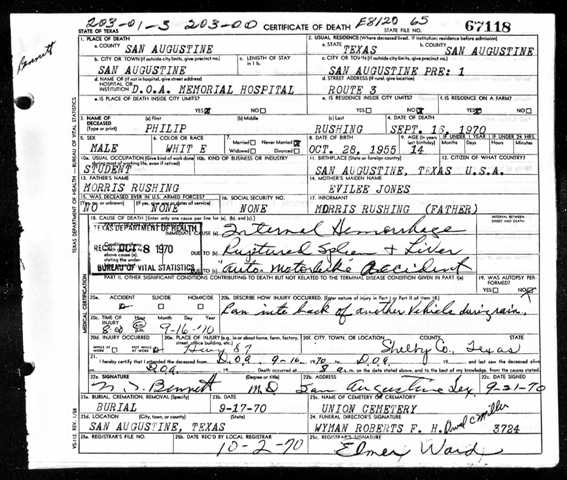 203-01-3 203-00 CERTIFICATE OF DEATH E8120 65
STATE OF TEXAS STATE FILE NO. 67118
Bennett
1. PLACE OF DEATH 2. USUAL RESIDENCE (Where deceased lived. If institution: residence before admission)
a. COUNTY SAN AUGUSTINE a. STATE TEXAS b. COUNTY SAN AUGUSTINE
b. CITY OR TOWN (If outside city limits, give precinct no.) c. LENGTH OF STAY c. CITY OR TOWN (If outside city limits, give precinct no.)
SAN AUGUSTINE SAN AUGUSTINE PRE: 1
d. NAME OF (If not in hospital, give street address) d. STREET ADDRESS (If rural, give location)
HOSPITAL OR INSTITUTION D.O.A. MEMORIAL HOSPITAL ROUTE 3
e. IS PLACE OF DEATH INSIDE CITY LIMITS? e. IS RESIDENCE INSIDE CITY LIMITS? f. IS RESIDENCE ON A FARM?
YES NO YES NO YES NO
3. NAME OF DECEASED (Type or print) (a) First (b) Middle (c) Last 4. DATE OF DEATH
PHILIP RUSHING SEPT. 16, 1970
5. SEX 6. COLOR OR RACE 7. Married Never Married Widowed Divorced 8. DATE OF BIRTH 9. AGE IF UNDER 1 YEAR IF UNDER 24 HRS.
MALE WHIT E OCT. 28, 1955 14
10a. USUAL OCCUPATION (Give kind of work done during most of working life, even if retired) 10b. KIND OF BUSINESS OR INDUSTRY 11. BIRTHPLACE (State or foreign country) 12. CITIZEN OF WHAT COUNTRY?
STUDENT SAN AUGUSTINE, TEXAS U.S.A.
13. FATHER'S NAME 14. MOTHER'S MAIDEN NAME
MORRIS RUSHING EVILEE JONES
15. WAS DECEASED EVER IN U.S. ARMED FORCES? 16. SOCIAL SECURITY NO. 17. INFORMANT
NO NONE NONE MORRIS RUSHING (FATHER)
18. CAUSE OF DEATH [Enter only one cause per line for (a), (b), and (c).] INTERVAL BETWEEN ONSET AND DEATH
TEXAS DEPARTMENT OF HEALTH IMMEDIATE CAUSE (a) Internal Hemorrhage
REC'D OCT 8 1970 DUE TO (b) Ruptured Spleen & Liver
above cause (a) stating the under- DUE TO (c) Auto Motorbike Accident
BUREAU OF VITAL STATISTICS
PART II. OTHER SIGNIFICANT CONDITIONS CONTRIBUTING TO DEATH BUT NOT RELATED TO THE TERMINAL DISEASE CONDITION GIVEN IN PART I(a) 19. WAS AUTOPSY PERFORMED?
YES NO
20a. ACCIDENT SUICIDE HOMICIDE 20b. DESCRIBE HOW INJURY OCCURRED. (Enter nature of injury in Part I or Part II of item 18.)
Ran into back of another Vehicle during rain.
20c. TIME OF INJURY Hour Month Day Year
8:00 9-16-70
20d. INJURY OCCURRED 20e. PLACE OF INJURY (e.g., in or about home, farm, factory, street, office building, etc.) 20f. CITY, TOWN, OR LOCATION COUNTY STATE
Hwy 87 Shelby Co, Texas
21. I hereby certify that I attended the deceased from D.O.A. 9-16-70 to D.O.A. and last saw the deceased alive
D.O.A. Death occurred at 8 a.m. on the date stated above, and to the best of my knowledge, from the causes stated.
22a. SIGNATURE 22b. ADDRESS 22c. DATE SIGNED
Bennett M.D. San Augustine Tex, 9-21-70
23a. BURIAL, CREMATION, REMOVAL (Specify) 23b. DATE 23c. NAME OF CEMETERY OR CREMATORY
BURIAL 9-17-70 UNION CEMETERY
23d. LOCATION (City, town, or county) (State) 24. FUNERAL DIRECTOR'S SIGNATURE
SAN AUGUSTINE, TEXAS WYMAN ROBERTS F. H. Miller 3724
25a. REGISTRAR'S FILE NO. 25b. DATE REC'D BY LOCAL REGISTRAR 25c. REGISTRAR'S SIGNATURE
10-2-70 Elmer Ward
TEXAS DEPARTMENT OF HEALTH — BUREAU OF VITAL STATISTICS
MEDICAL CERTIFICATION
VS-112 REV. 1/58